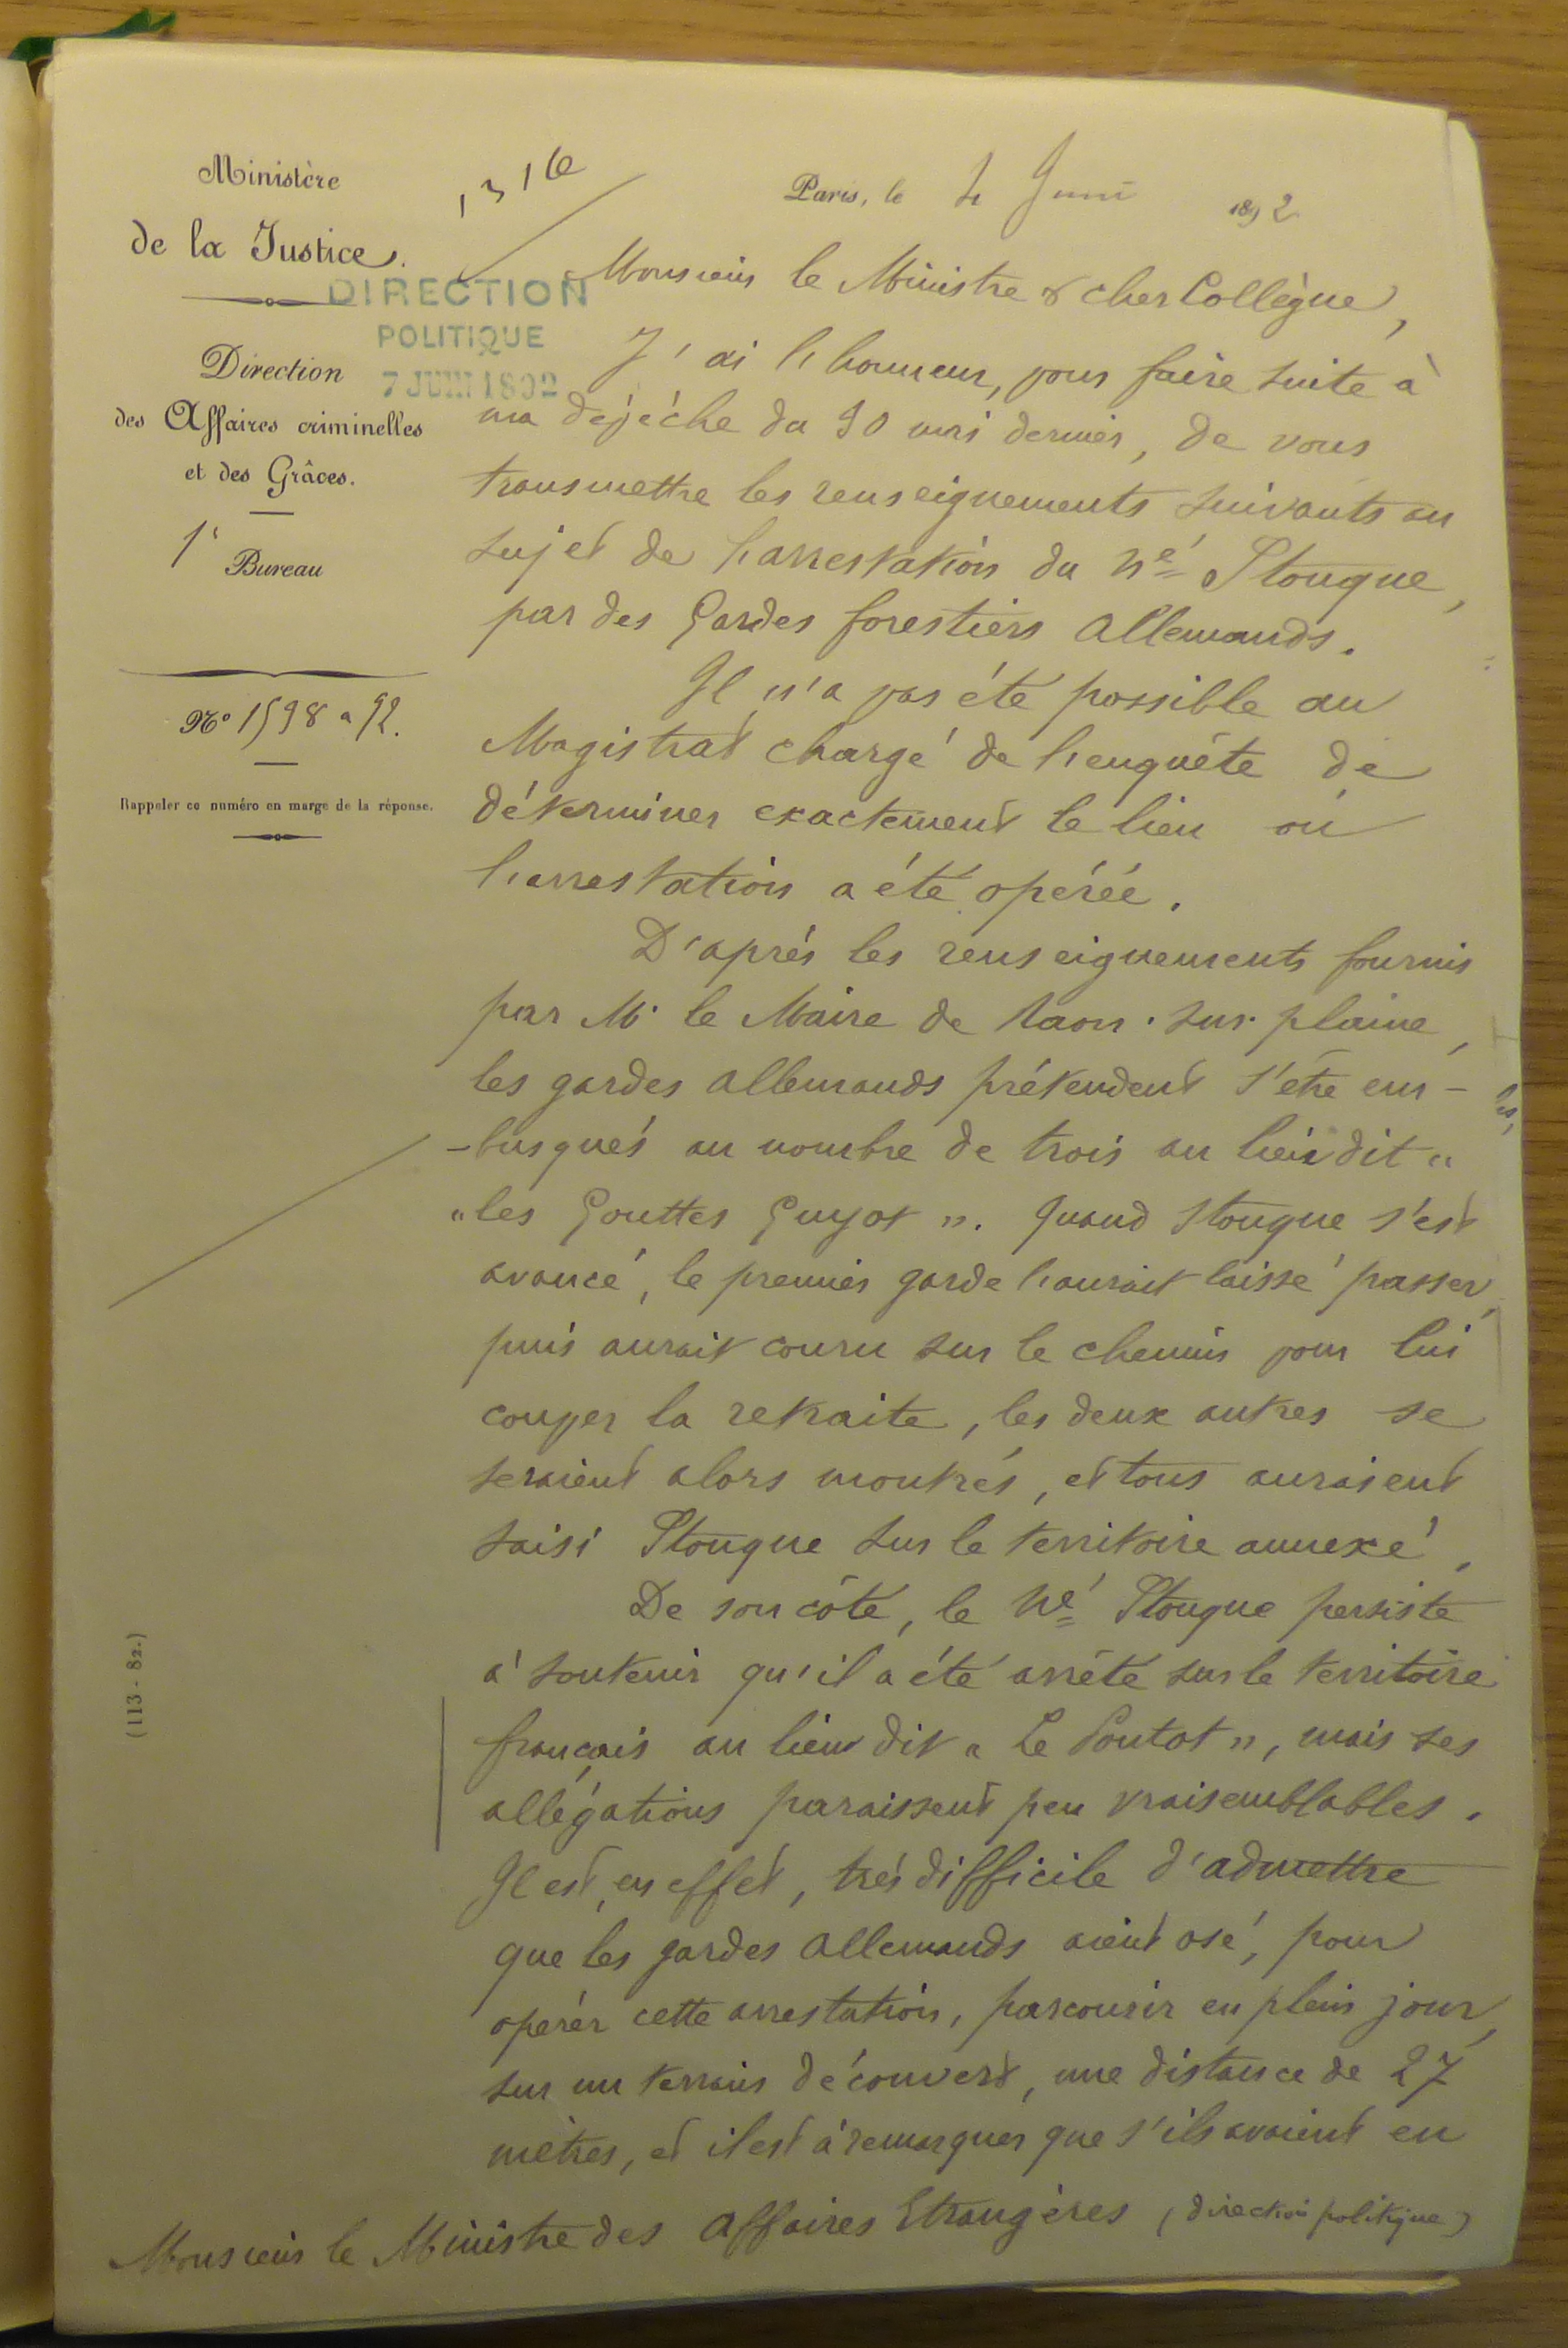 Ministère
de la Justice.
DIRECTION
POLITIQUE
7 JUIN 1892
Direction
des Affaires criminelles
et des Grâces.
1r Bureau
No 1598 a 92.
Rappeler ce numéro en marge de la réponse.
(113 - 82.)
Paris, le 4 Juin 1892
Monsieur le Ministre & cher Collègue,
J'ai l'honneur, pour faire suite à
ma dépêche du 30 mai dernier, de vous
transmettre les renseignements suivants au
sujet de l'arrestation du né Stouque,
par des Gardes forestiers Allemands.
Il n'a pas été possible au
Magistrat chargé de l'enquête de
déterminer exactement le lieu où
l'arrestation a été opérée.
D'après les renseignements fournis
par M. le Maire de Raon-sur-plaine,
les gardes allemands prétendent s'être em-
-busqués au nombre de trois au lieu dit "
"les Gouttes Guyot". Quand Stouque s'est
avancé, le premier garde l'aurait laissé passer,
puis aurait couru sur le chemin pour lui
couper la retraite, les deux autres se
seraient alors montrés, et tous auraient
saisi Stouque sur le territoire annexé.
De son côté, le né Stouque persiste
à soutenir qu'il a été arrêté sur le territoire
français au lieu dit "Le Poutot", mais ses
allégations paraissent peu vraisemblables.
Il est, en effet, très difficile d'admettre
que les gardes allemands aient osé, pour
opérer cette arrestation, parcourir en plein jour,
sur un terrain découvert, une distance de 27
mètres, et il est à remarquer que s'ils avaient eu
Monsieur le Ministre des Affaires Etrangères (direction politique)